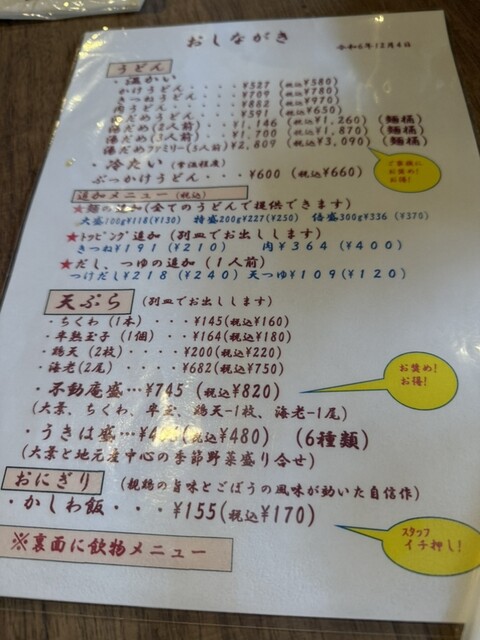 おしながき
令和6年12月4日
うどん
・温かい
かけうどん・・・・・¥527 (税込¥580)
きつねうどん・・・・¥709 (税込¥780)
肉うどん・・・・・・¥882 (税込¥970)
湯だめうどん・・・・¥591 (税込¥650)
湯だめ(2人前)・・・¥1,146 (税込¥1,260) (麺桶)
湯だめ(3人前)・・・¥1,700 (税込¥1,870) (麺桶)
湯だめファミリー(5人前)¥2,809 (税込¥3,090) (麺桶)
ご家族に
お奨め!
お得!
・冷たい (常温程度)
ぶっかけうどん・・・・¥600 (税込¥660)
追加メニュー(税込)
★麺の追加(全てのうどんで提供できます)
大盛100g¥118(¥130) 特盛200g¥227(¥250) 倍盛300g¥336 (¥370)
★トッピング追加 (別皿でお出しします)
きつね¥191 (¥210) 肉¥364 (¥400)
★だし、つゆの追加 (1人前)
つけだし¥218 (¥240) 天つゆ¥109(¥120)
天ぷら (別皿でお出しします)
・ちくわ (1本)・・・¥145(税込¥160)
・半熟玉子 (1個)・・¥164(税込¥180)
・鶏天 (2枚)・・・・¥200(税込¥220)
・海老(2尾)・・・・¥682(税込¥750)
・不動庵盛…¥745 (税込¥820)
お奨め!
お得!
(大葉、ちくわ、半玉、鶏天-1枚、海老-1尾)
・うきは盛…¥4(税込¥480) (6種類)
(大葉と地元産中心の季節野菜盛り合せ)
おにぎり (親鶏の旨味とごぼうの風味が効いた自信作)
・かしわ飯・・・¥155(税込¥170)
スタッフ
イチ押し!
※裏面に飲物メニュー